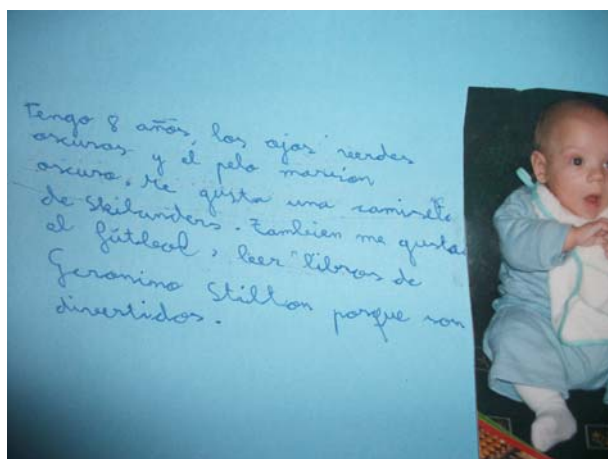 Tengo 8 años, los ojos verdes
oscuros y el pelo marrón
oscuro. Me gusta una camiseta
de Skilunders. También me gusta
el fútbol, leer libros de
Geronimo Stilton porque son
divertidos.